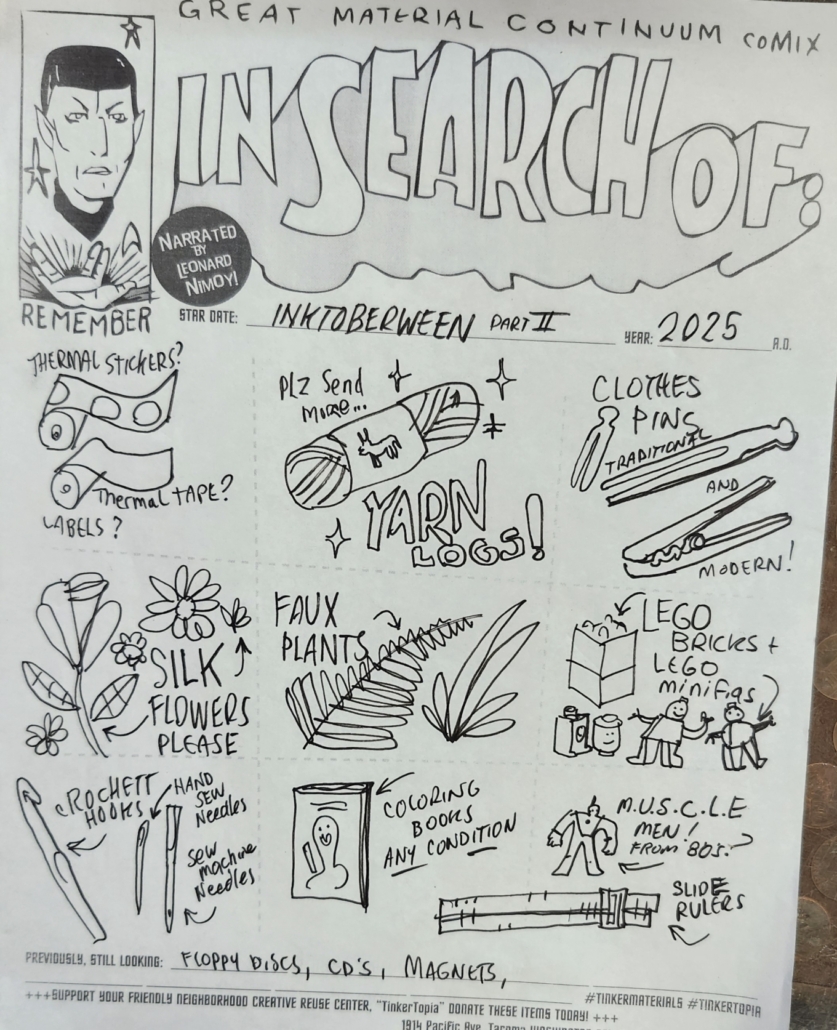 GREAT MATERIAL CONTINUUM COMIX
IN SEARCH OF:
NARRATED
BY
LEONARD
NIMOY!
REMEMBER
STAR DATE: INKTOBERWEEN PART II YEAR: 2025 A.D.
THERMAL STICKERS?
Thermal TAPE?
LABELS?
PLZ Send
MORE...
YARN
LOGS!
CLOTHES
PINS
TRADITIONAL
AND
MODERN!
SILK
FLOWERS
PLEASE
FAUX
PLANTS
LEGO
BRICKS +
LEGO
minifigs
CROCHETT
HOOKS
HAND
SEW
Needles
Sew
machine
Needles
COLORING
BOOKS
ANY CONDITION
M.U.S.C.L.E
MEN!
FROM '80S?
SLIDE
RULERS
PREVIOUSLY, STILL LOOKING: FLOPPY DISCS, CD'S, MAGNETS,
#TINKERMATERIALS #TINKERTOPIA
+++SUPPORT YOUR FRIENDLY NEIGHBORHOOD CREATIVE REUSE CENTER, "TinkerTopia" DONATE THESE ITEMS TODAY! +++
1914 Pacific Ave, Tacoma